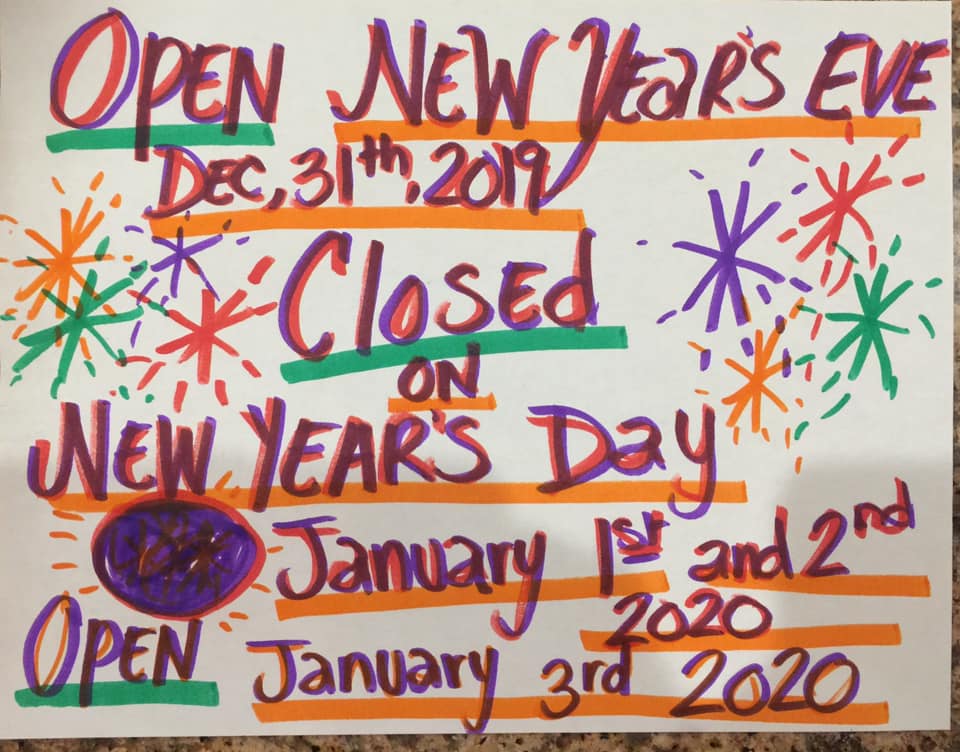 OPEN NEW YEAR'S EVE
DEC, 31th, 2019
Closed
ON
NEW YEAR'S Day
January 1st and 2nd
2020
OPEN January 3rd 2020